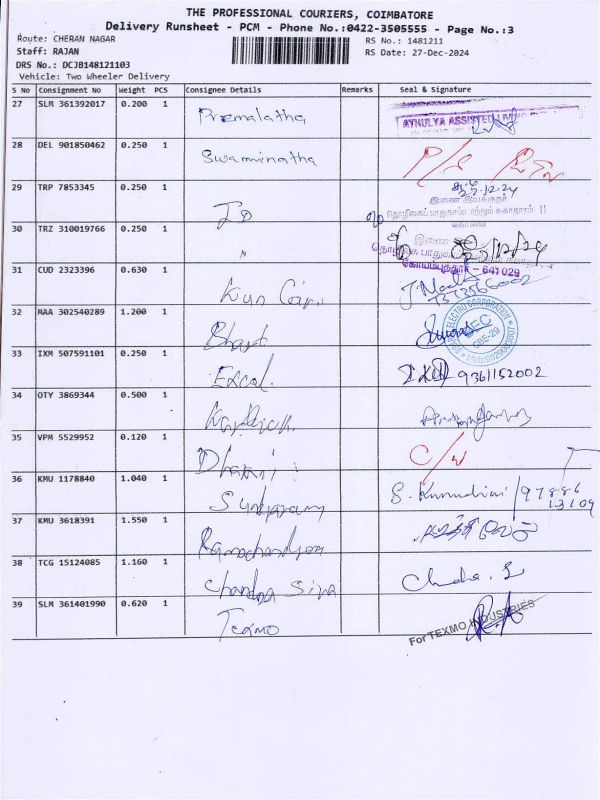 THE PROFESSIONAL COURIERS, COIMBATORE
Delivery Runsheet - PCM - Phone No.:0422-3505555 - Page No.:3
Route: CHERAN NAGAR
RS No.: 1481211
Staff: RAJAN
RS Date: 27-Dec-2024
DRS No.: DCJB148121103
Vehicle: Two Wheeler Delivery
S No Consignment No Weight PCS Consignee Details Remarks Seal & Signature
27 SLM 361392017 0.200 1 Premalatha ATHULYA ASSISTED LIVING
28 DEL 901850462 0.250 1 Swaminatha
29 TRP 7853345 0.250 1 JD
இணை இயக்குநர்
தொழிலகப் பாதுகாப்பு மற்றும் சுகாதாரம் II
கோவை
30 TRZ 310019766 0.250 1 "
கோயம்புத்தூர் - 641 029
31 CUD 2323396 0.630 1
32 MAA 302540289 1.200 1 Bharat ELECTRO CORPORATION BEC CBE-29
33 IXM 507591101 0.250 1 Excel 9361152002
34 OTY 3869344 0.500 1 Karthick
35 VPM 5529952 0.120 1 Dharni C/W
36 KMU 1178840 1.040 1 Sundaram 97886
13109
37 KMU 3618391 1.550 1 Ramachandran
38 TCG 15124085 1.160 1 Chandra Siva
39 SLM 361401990 0.620 1 Texmo For TEXMO INDUSTRIES